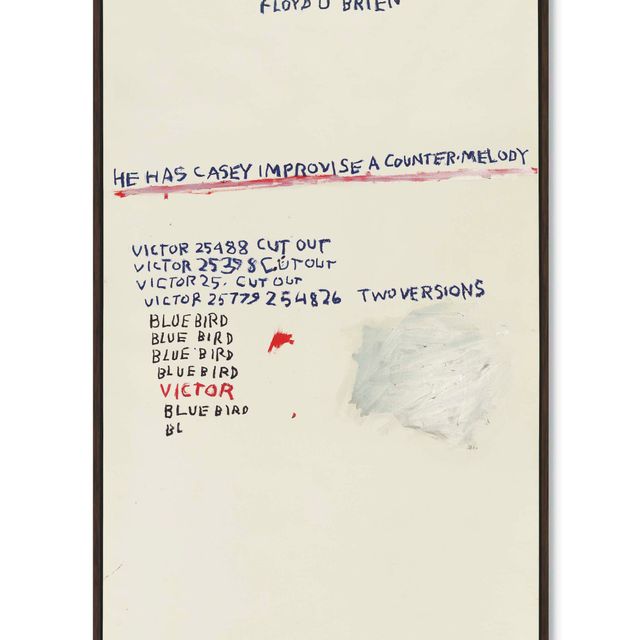 FLOYD O'BRIEN
HE HAS CASEY IMPROVISE A COUNTER·MELODY
VICTOR 25488 CUT OUT
VICTOR 25398 CUTOUT
VICTOR 25. CUT OUT
VICTOR 25779 254826 TWO VERSIONS
BLUEBIRD
BLUE BIRD
BLUE BIRD
BLUEBIRD
VICTOR
BLUE BIRD
BL